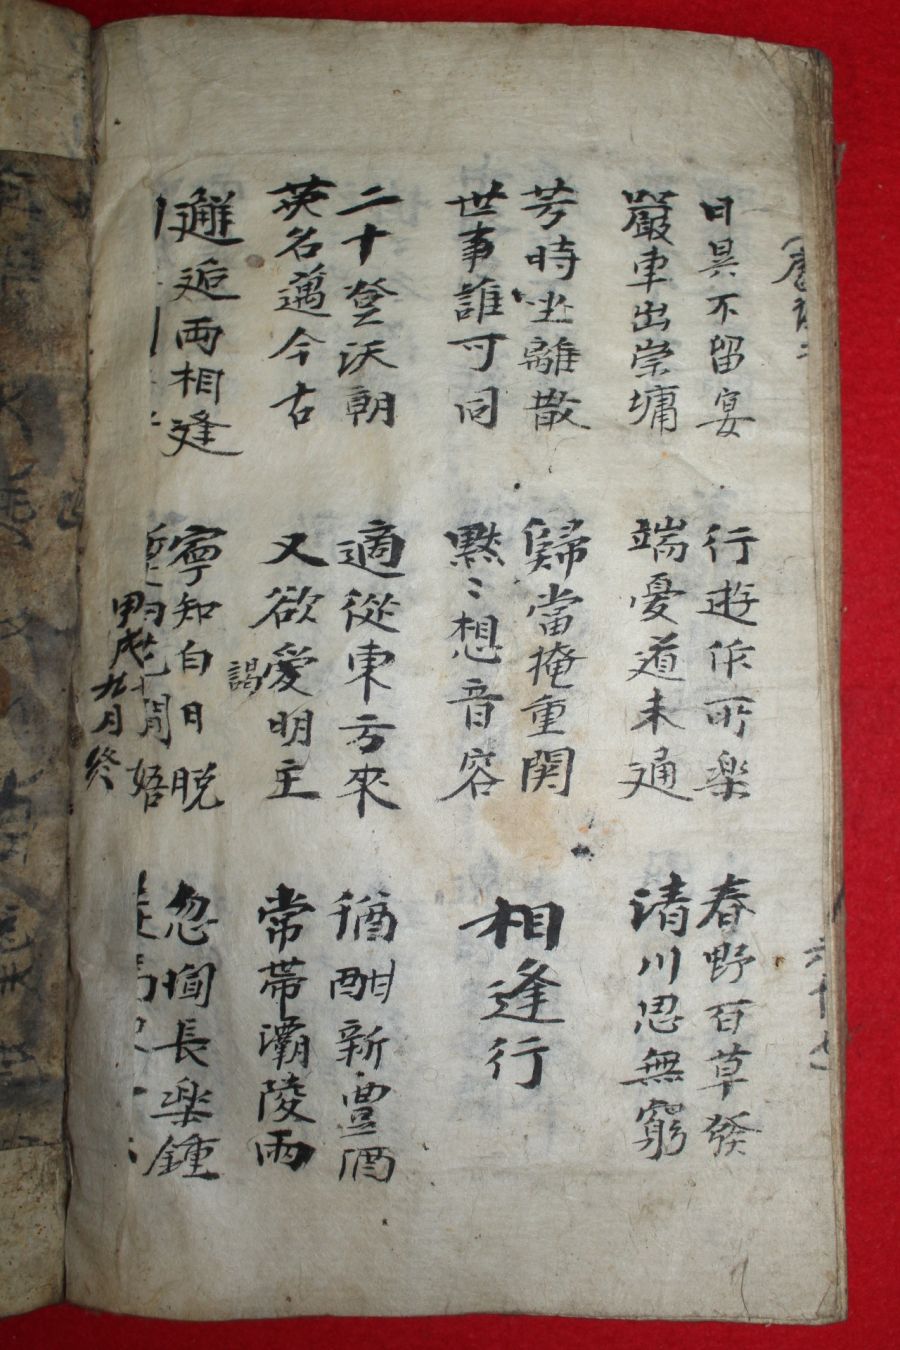 日昃不留宴
嚴車出崇墉
行遊作所楽
端憂道未通
春野百草發
清川思無窮
芳時坐離散
世事誰可同
歸當掩重関
黙〻想音容
相逢行
二十登沃朝
英名邁今古
適從東方來
又欲愛明主
謁
猶酣新豊酒
常帶灞陵雨
邂逅兩相逢
寧知白日脱
間
忽聞長楽鍾
甲戌九月終